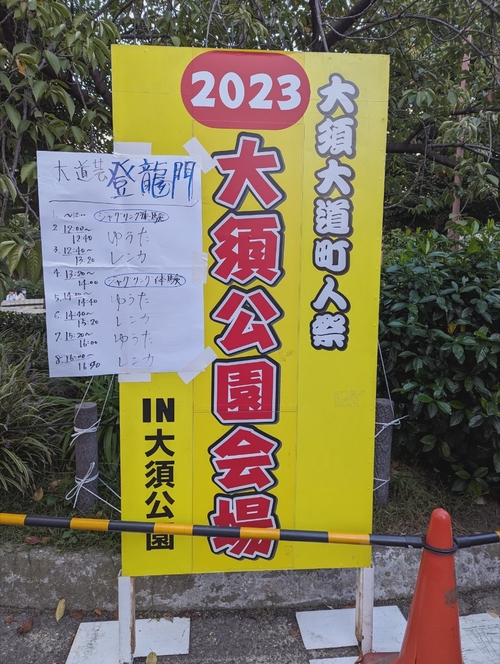 2023
大須大道町人祭
大須公園会場
IN大須公園
大道芸登龍門
1. ～12:00 ジャグリング体験
2. 12:00～12:40 ゆうた
3. 12:40～13:20 レンカ
4. 13:20～14:00 ジャグリング体験
5. 14:00～14:40 ゆうた
6. 14:40～15:20 レンカ
7. 15:20～16:00 ゆうた
8. 16:00～16:40 レンカ